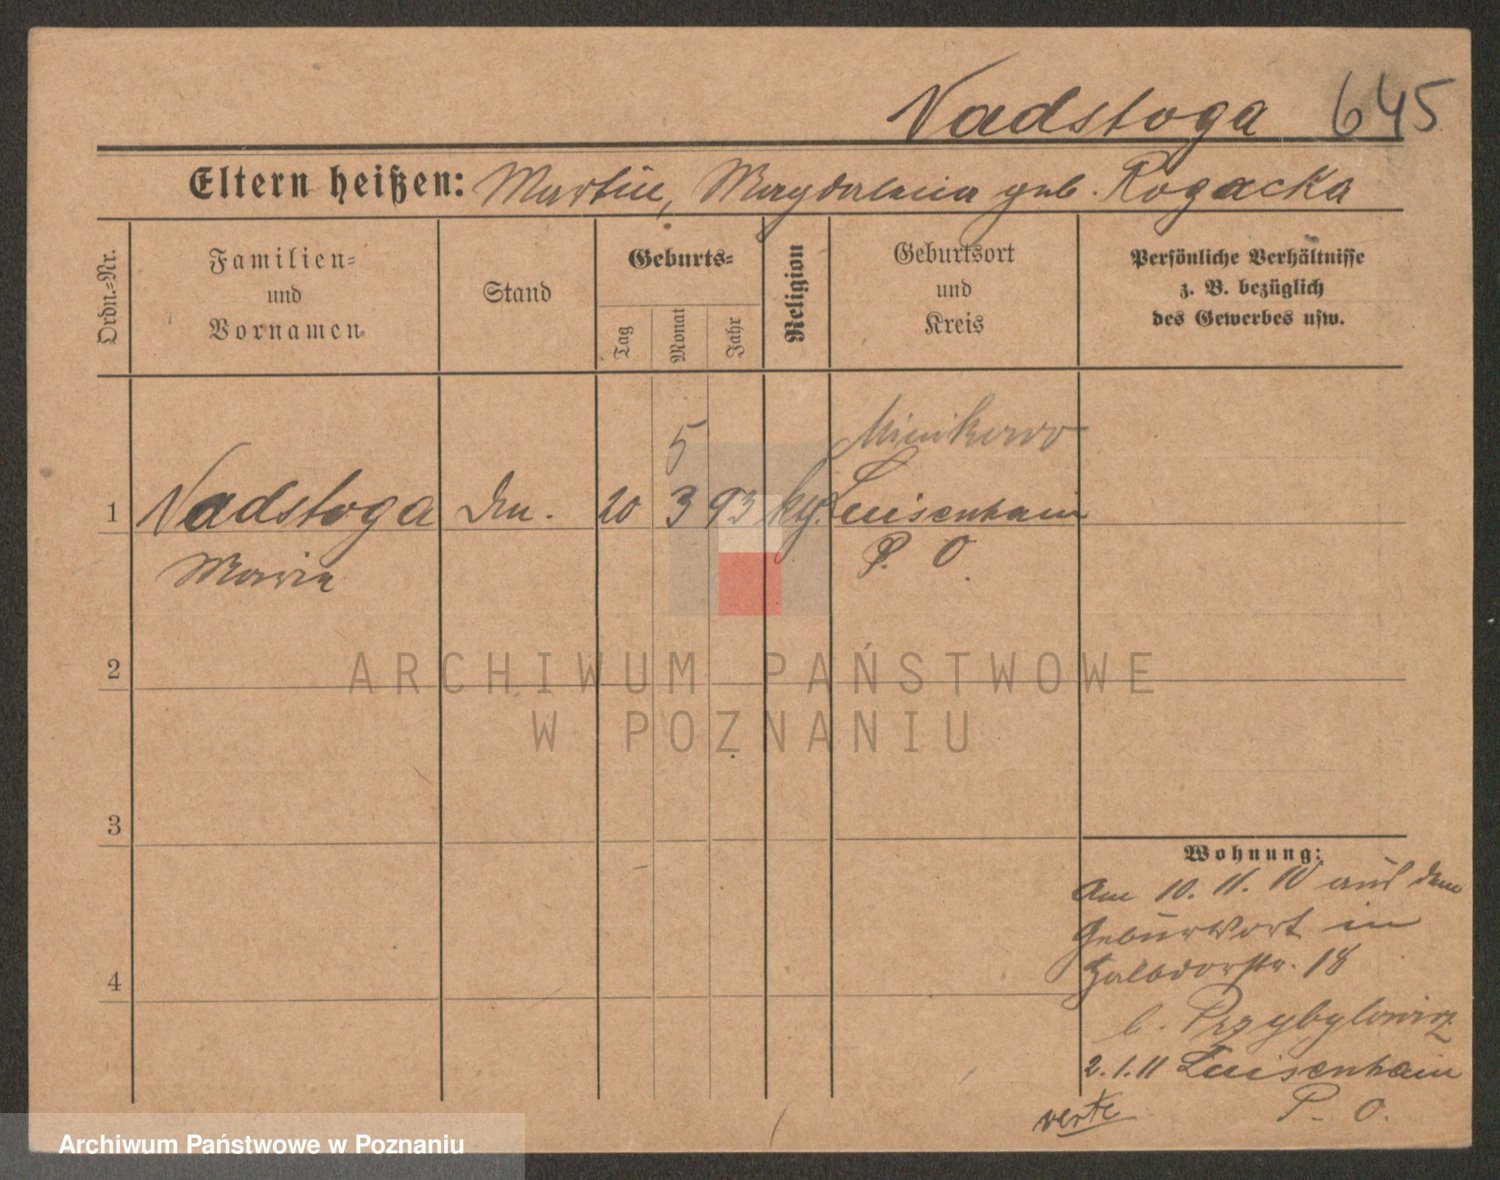 Nadstoga 645
Eltern heißen: Martin, Magdalena geb. Rogacka
Ordn.-Nr.
Familien-
und
Vornamen
Stand
Geburts-
Tag
Monat
Jahr
Religion
Geburtsort
und
Kreis
Persönliche Verhältnisse
z. B. bezüglich
des Gewerbes usw.
5 Minikowo
1 Nadstoga 20 3 93 Luisenhain
Maria P. O.
2
3
4
Wohnung:
Am 10. 11. 10 aus dem
Geburtsort in
Halbdorfstr. 18
b. Przybylowicz
2. 1. 11 Luisenhain
P. O.
verte
ARCHIWUM PAŃSTWOWE
W POZNANIU
Archiwum Państwowe w Poznaniu